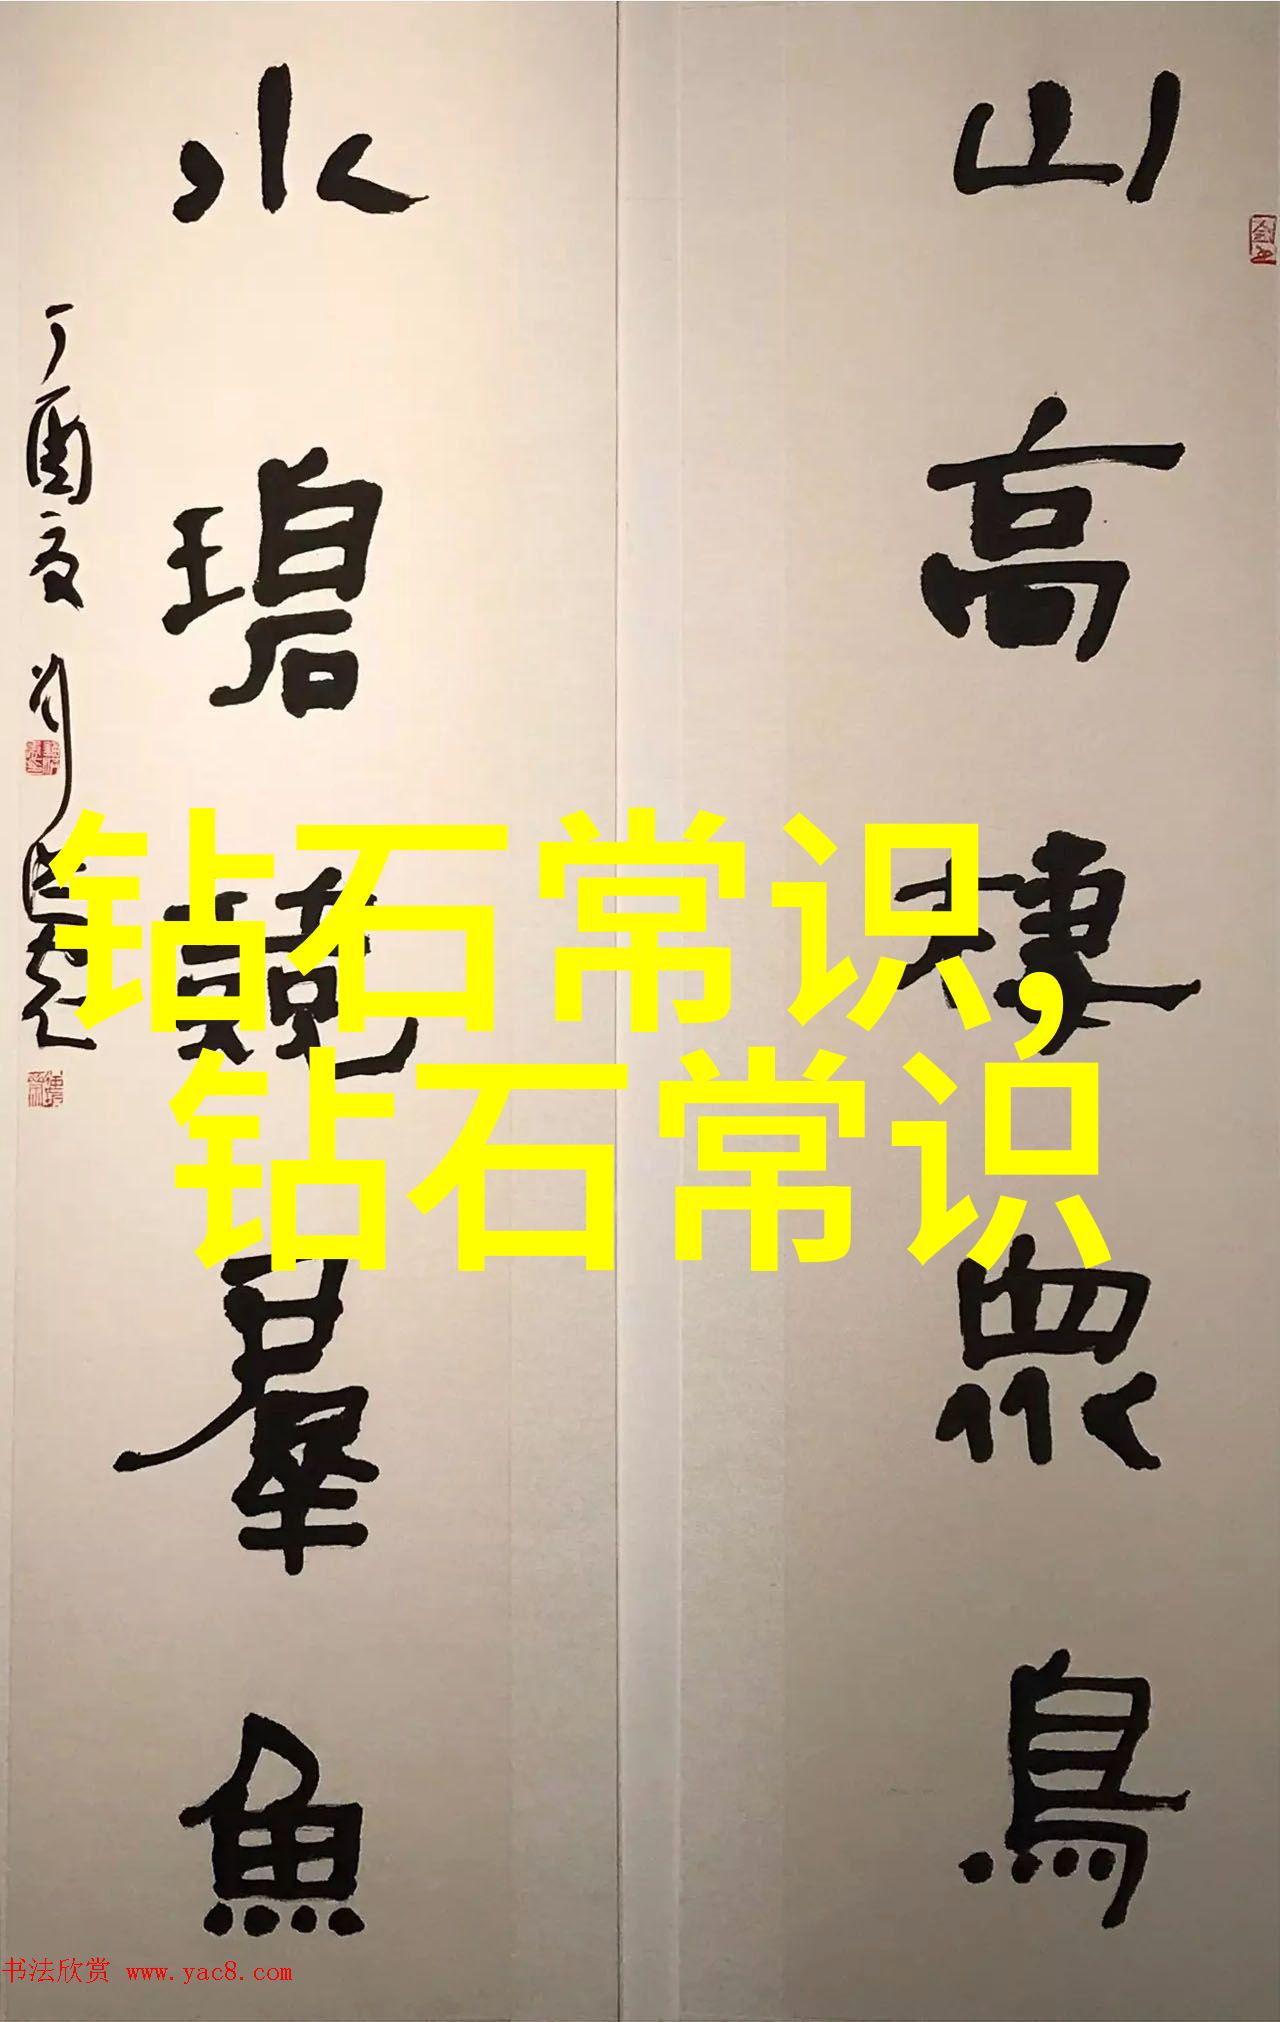 山高棲眾鳥
水碧競羣魚
丁酉夏
钻石常识，
钻石常识
书法欣赏 www.yac8.com